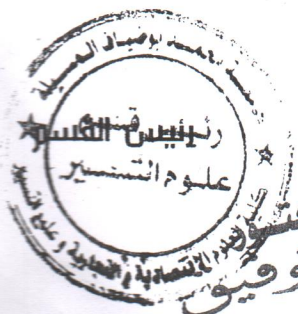 جامعة محمد بوضياف المسيلة
رئيس قسم
رئيس القسم
علوم التسيير
كلية العلوم الاقتصادية و التجارية و علوم التسيير
توفيق